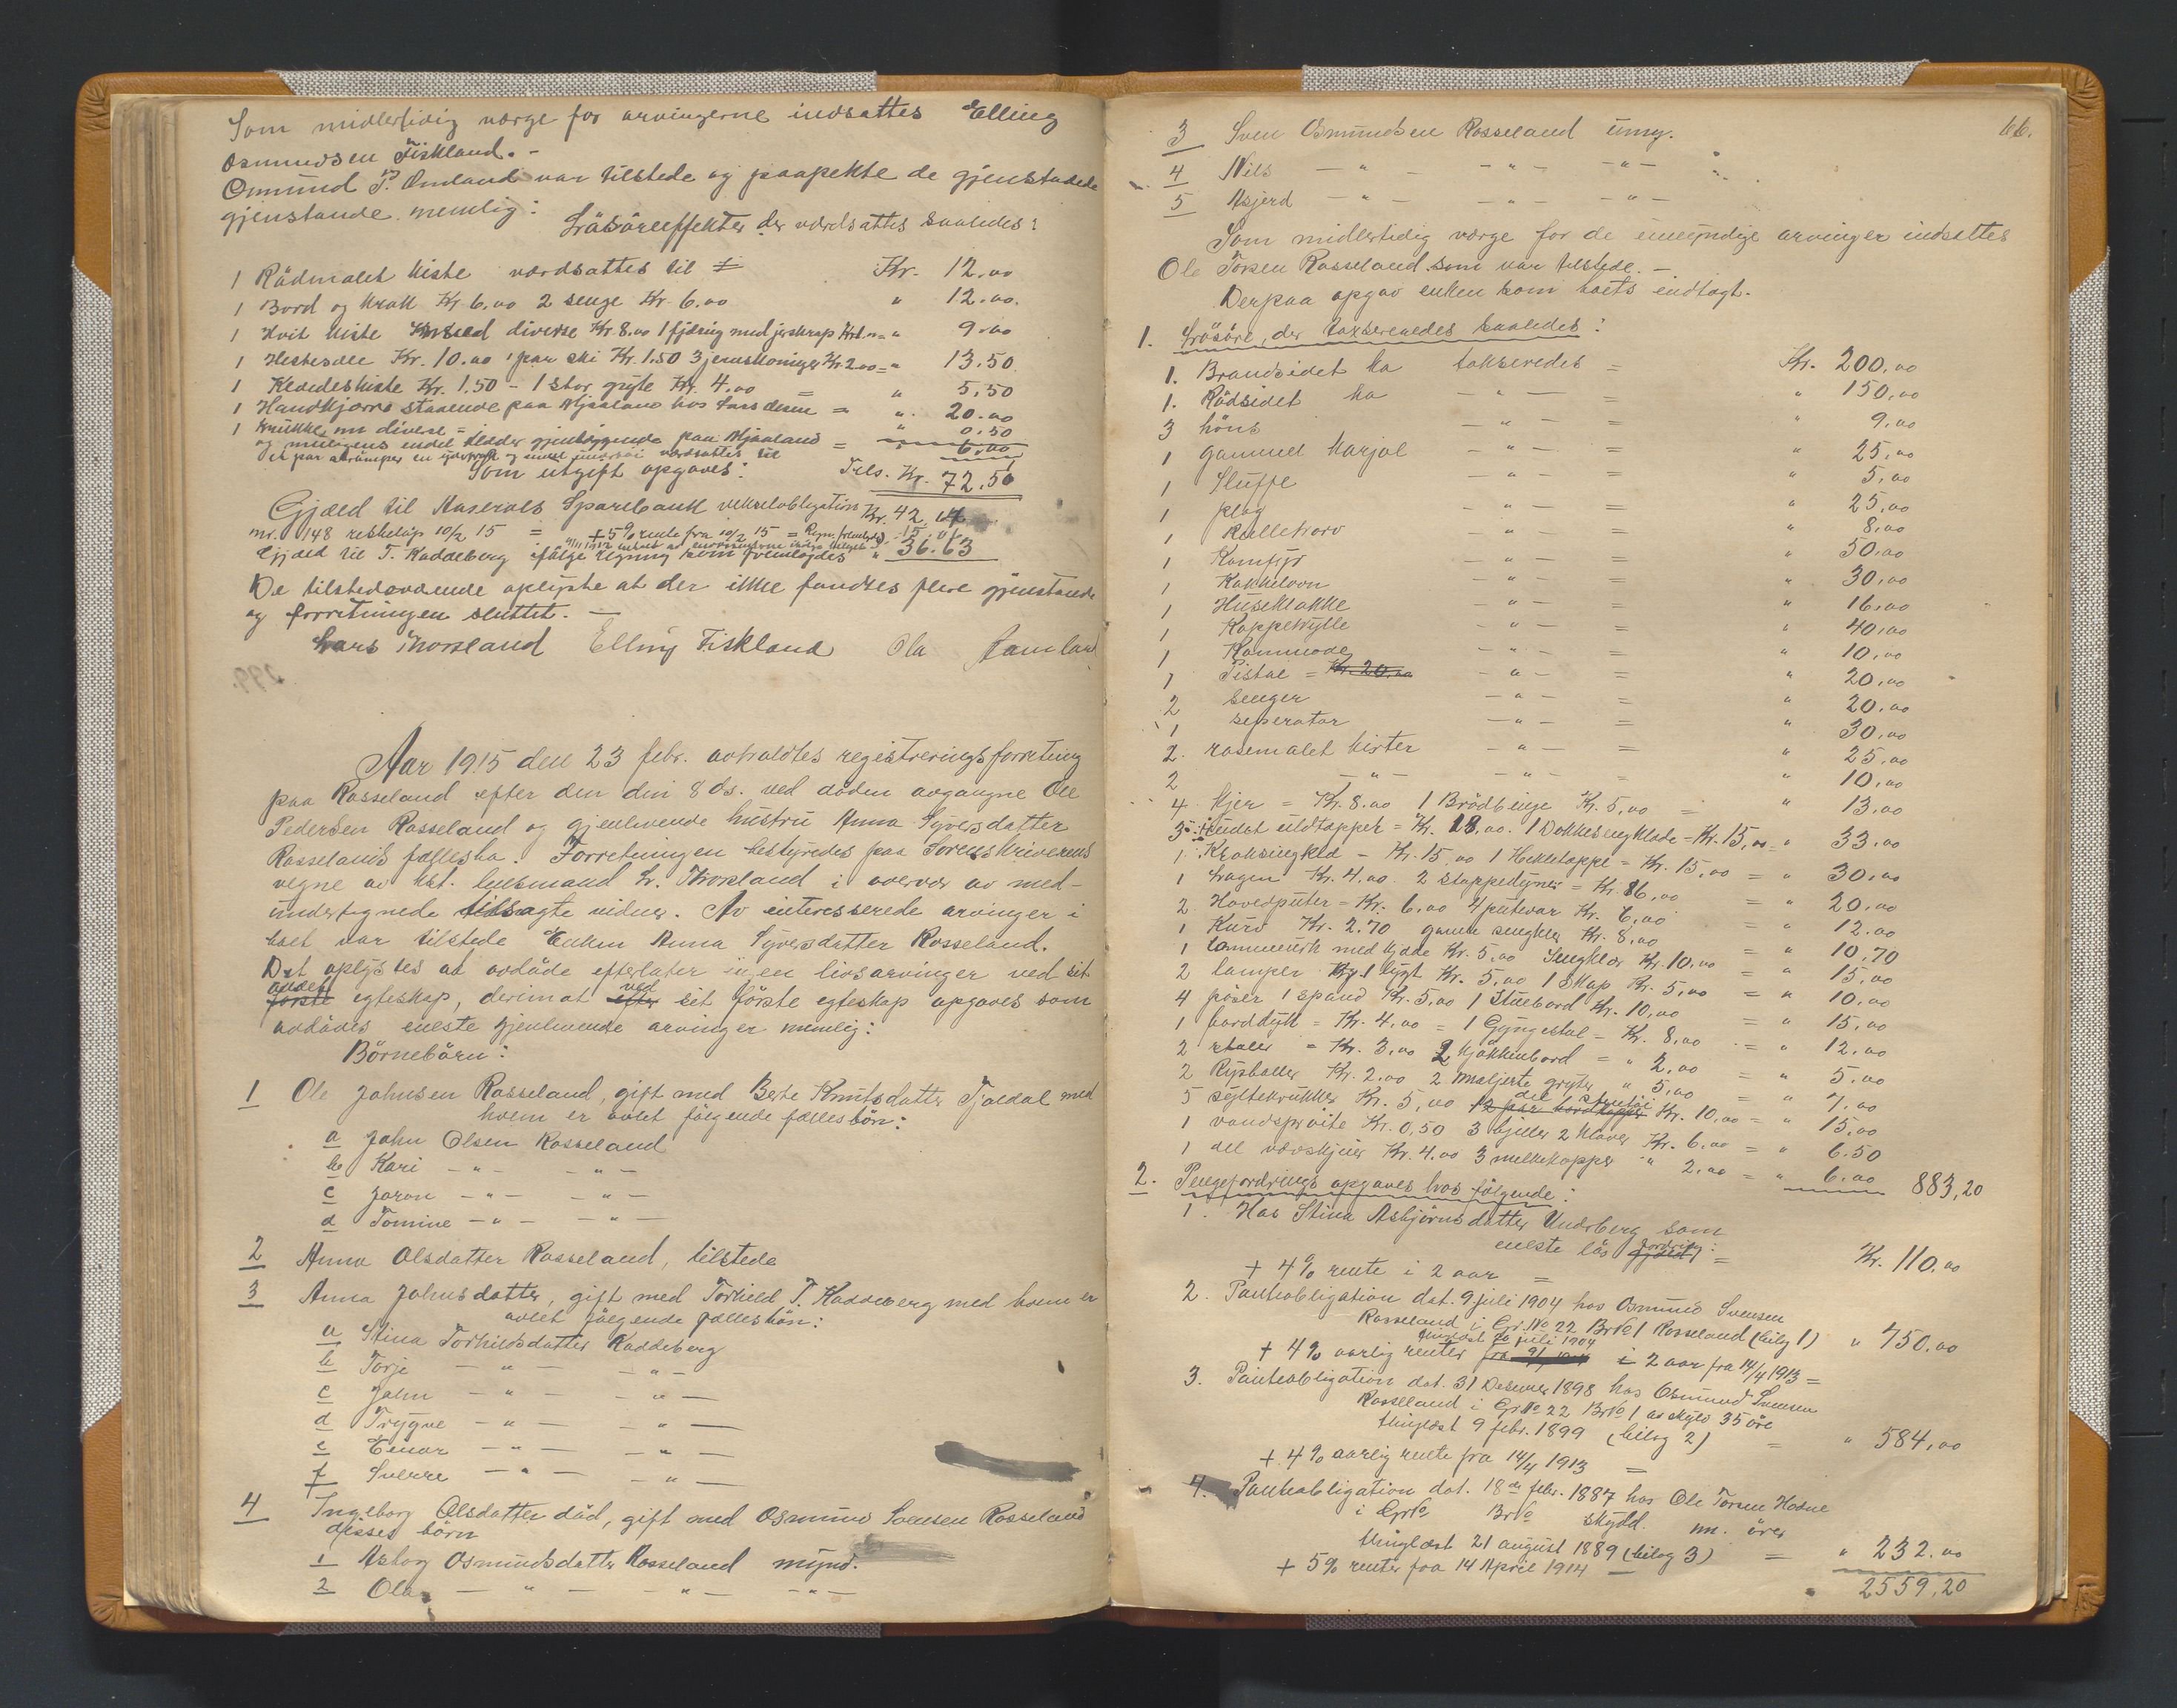 Som midlertidig værge for arvingerne indsattes Elling
Osmundsen Fiskland. -
Osmund T. Omland var tilstede og paapekte de gjenstaaende
gjenstande nemlig:
Lösöreeffekter der værdsattes saaledes:
1 Rödmalet kiste værdsattes til Kr. 12.00
1 Bord og krak Kr. 6.00 2 senge Kr. 6.00 " 12.00.
1 Hvit kiste diverse Kr. 8.00 1 fjæring med jerskrap = " 9.00
1 Hestesæle Kr. 10.00 1 par ski Kr. 1.50 3 Kr. 2.00 = " 13.50
1 Klædeskiste Kr. 1.50 - 1 stor gryte Kr. 4.00 = " 5.50
1 Handkjærre staaende paa Mjaaland hos = " 20.00
1 krukke m diverse = " 0.50
og muligens endel klæder gjenliggende paa Mjaaland = " 6.00
et par en og værdsattes til
Som utgift opgaves: Tils. Kr. 72.50
Gjæld til Aaserals Sparebank vekselobligation Kr. 42.
nr. 148 restkap 10/2 15 = + 5% rente fra 10/2 15 =
Gjæld til T. Kaddeberg ifölge regning som fremlagdes " 36.63
De tilstedeværende oplyste at der ikke fandtes flere gjenstande
og forretningen sluttet. -
Lars Thorsland Elling Fiskland Ola Aamland
Aar 1915 den 23 febr. avholdtes registreringsforretning
paa Rosseland efter den den 8 ds. ved döden avgangne Ole
Pedersen Rosseland og gjenlevende hustru Anna Syversdatter
Rosselands fællesbo. Forretningen bestyredes paa Sorenskriverens
vegne av kst. lensmand L. Thorsland i overvær av med-
undertegnede tilsagte vidner. Av interesserede arvinger i
boet var tilstede Enken Anna Syversdatter Rosseland.
Det oplystes at avdöde efterlater ingen livsarvinger ved sit
andet
förste egteskap, derimot efter ved sit förste egteskap opgaves som
avdödes eneste gjenlevende arvinger nemlig:
Börnebörn:
1 Ole Johnsen Rosseland, gift med Berte Knutsdatter Tjaldal med
hvem er avlet fölgende fællesbön:
a John Olsen Rosseland
b Kari - " - - " -
c Joron - " - - " -
d Tomine - " - - " -
2 Anna Olsdatter Rosseland, tilstede
3 Anna Johnsdatter, gift med Torkild T. Kaddeberg med hvem er
avlet fölgende fællesbön:
a Stina Torkildsdatter Kaddeberg
b Torje - " - - " -
c John - " - - " -
d Trygve - " - - " -
e Einar - " - - " -
f Sverre - " - - " -
4 Ingeborg Olsdatter död, gift med Osmund Svensen Rosseland
disses börn
1 Asborg Osmundsdatter Rosseland mynd.
2 Ola - " - - " - - " -
66.
3 Sven Osmundsen Rosseland umy.
4 Nils - " - - " - - " -
5 Asjerd - " - - " - - " -
Som midlertidig værge for de umyndige arvinger indsattes
Ole Torsen Rosseland som var tilstede. -
Derpaa opgav enken som boets indtægt.
1. Lösöre, der taxserenedes saaledes:
1. Brandsidet ko takseredes = Kr. 200,00
1. Rödsidet ko - " - = " 150,00
3 höns - " - = " 9,00
1 gammel karjol - " - = " 25,00
1 Sluffe - " - = " 5,00
1 plog - " - = " 25,00
1 Rulleharv - " - = " 8,00
1 Komfyr - " - = " 50,00
1 Kakkelovn - " - = " 30,00
1 Huseklokke - " - = " 16,00
1 Koppehylle - " - = " 40,00
1 Kommode - " - = " 10,00
1 Pistol = Kr. 20.00 - " - = " 20,00
2 senger - " - = " 20,00
1 seperator - " - = " 30,00
2. rosemalet kister - " - = " 25,00
2 - " - - " - = " 10,00
4 kjer = Kr. 8.00 1 Brödbinge Kr. 5,00 = " 13,00
3 uldtæpper = Kr. 18.00. 1 Dokkesengklæde = Kr. 15,00 = " 33,00
1 Kroksingklæ - Kr. 15.00 1 Hekletæppe = Kr. 15,00 = " 30,00
1 Lagen Kr. 4.00. 2 stoppedyner = Kr. 16,00 = " 20,00
2 Hovedputer = Kr. 6,00 4 putevar Kr. 6,00 = " 12,00
1 Kurv Kr. 2.70 gamle sengklær Kr. 8,00 = " 10,70
1 lommeurh med kjæde Kr. 5,00 Sengklær Kr. 10,00 = " 15,00
2 lamper 1 lygt Kr. 5,00 1 skap Kr. 5,00 = " 10,00
4 pöser 1 spand Kr. 5,00 1 Stuebord Kr. 10,00 = " 15,00
1 borddyk = Kr. 4,00 = 1 Gyngestol = Kr. 8,00 = " 12,00
2 stoler = Kr. 3,00 2 kjökkenbord = " 2,00 = " 5,00
2 Kr. 2.00 2 emaljerte gryter " 5,00 = " 7,00
5 syltekrukker Kr. 5,00 del stentöi Kr. 10,00 = " 15,00
1 vandspröite Kr. 0,50 3 bjeller 2 klaver Kr. 6.00 = " 6.50
1 del Kr. 4.00 3 melkekopper " 2.00 = " 6.00 883,20
2. Pengefordringer opgaves hos fölgende:
1. Hos Stina Asbjörnsdatter Undeberg som
eneste lös fordring: = Kr. 110.00
+ 4% rente i 2 aar =
2. Panteobligation dat. 9 juli 1904 hos Osmund Svensen
Rosseland i Gr.No 22 BrNo 1 Rosseland (bilag 1) " 750.00
tinglæst 20 juli 1904
+ 4% aarlig renter i 2 aar fra 14/4 1913 =
3. Panteobligation dat. 31 Desember 1898 hos Osmund Svensen
Rosseland i GrNo 22 BrNo 1 av skyld 35 öre
thinglæst 9 febr. 1899 (bilag 2) = " 584,00
+ 4% aarlig rente fra 14/4 1913 =
4. Panteobligation dat. 18de febr. 1887 hos Ole Torsen
i GrNo BrNo skyld. m. örer
thinglæst 21 august 1889 (bilag 3) = " 232.00
+ 5% renter fra 14 April 1914 - 2559,20